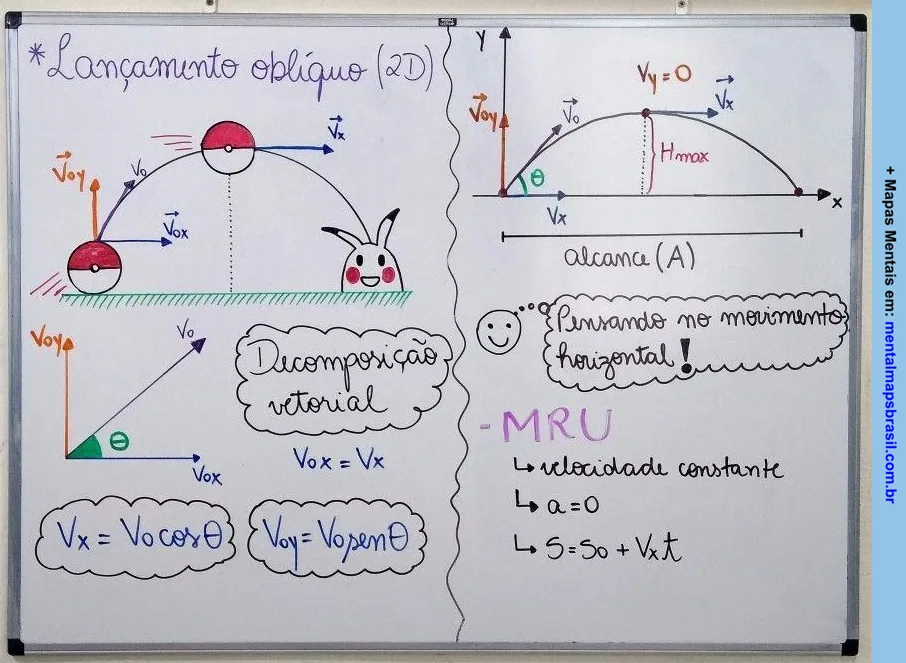 *Lançamento oblíquo (2D)
V⃗x
V⃗oy
Vo
V⃗ox
Voy
Vo
θ
Vox
Decomposição
vetorial
Vox = Vx
Vx = Vo cos θ
Voy = Vo sen θ
Y
Vy = 0
V⃗x
V⃗oy
V⃗o
Hmax
θ
Vx
x
alcance (A)
Pensando no movimento
horizontal!
- MRU
↳ velocidade constante
↳ a = 0
↳ S = So + Vx t
+ Mapas Mentais em: mentalmapsbrasil.com.br